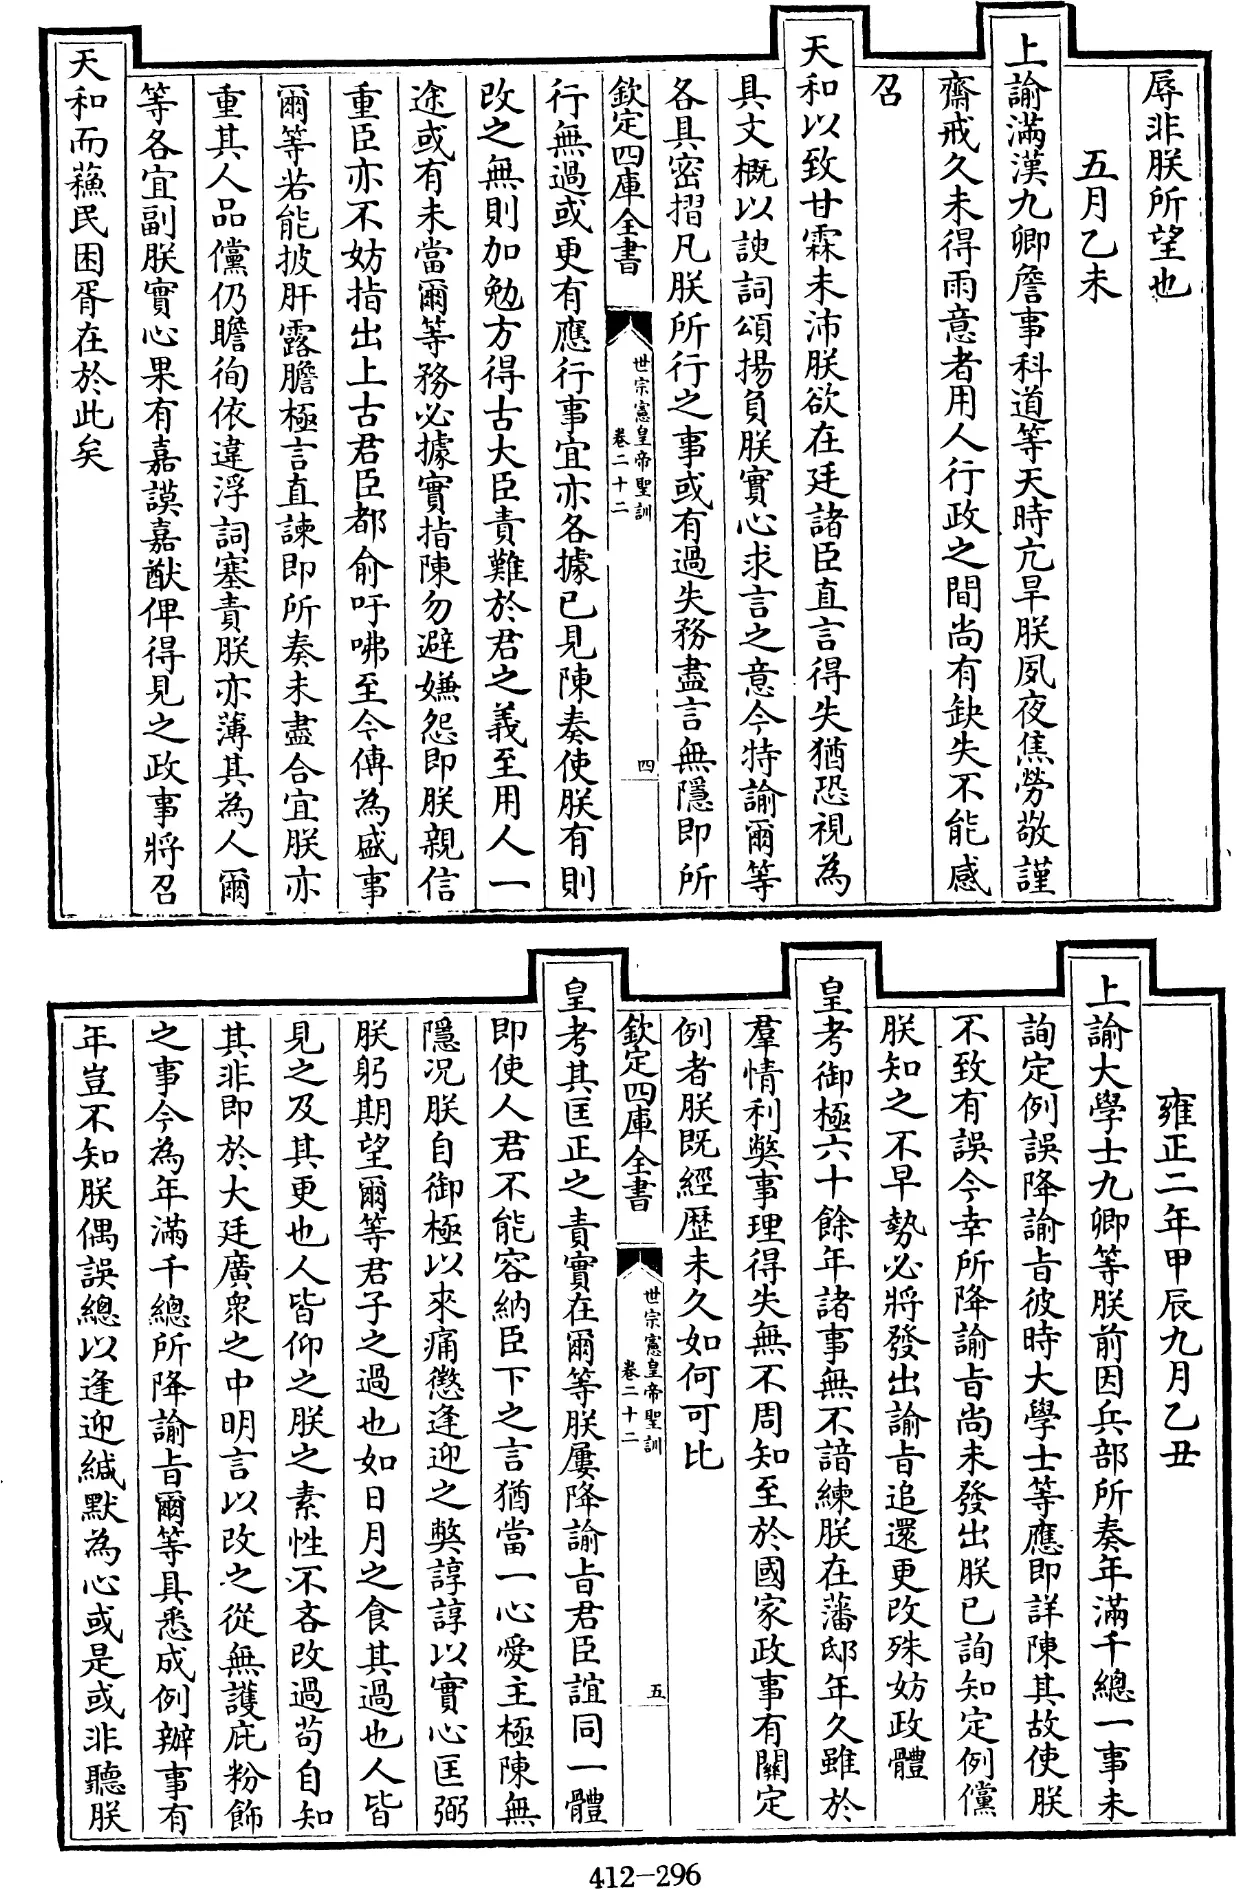 辱非朕所望也
五月乙未
上諭滿漢九卿詹事科道等天時亢旱朕夙夜焦勞敬謹
齋戒久未得雨意者用人行政之間尚有缺失不能感
召
天和以致甘霖未沛朕欲在廷諸臣直言得失猶恐視為
具文概以諛詞頌揚負朕實心求言之意今特諭爾等
各具密摺凡朕所行之事或有過失務盡言無隱即所
欽定四庫全書
世宗憲皇帝聖訓
卷二十二
四
行無過或更有應行事宜亦各據已見陳奏使朕有則
改之無則加勉方得古大臣責難於君之義至用人一
途或有未當爾等務必據實指陳勿避嫌怨即朕親信
重臣亦不妨指出上古君臣都俞吁咈至今傳為盛事
爾等若能披肝露膽極言直諫即所奏未盡合宜朕亦
重其人品儻仍瞻徇依違浮詞塞責朕亦薄其為人爾
等各宜副朕實心果有嘉謨嘉猷俾得見之政事將召
天和而蘓民困胥在於此矣
雍正二年甲辰九月乙丑
上諭大學士九卿等朕前因兵部所奏年滿千總一事未
詢定例誤降諭旨彼時大學士等應即詳陳其故使朕
不致有誤今幸所降諭旨尚未發出朕已詢知定例儻
朕知之不早勢必將發出諭旨追還更改殊妨政體
皇考御極六十餘年諸事無不諳練朕在藩邸年久雖於
羣情利弊事理得失無不周知至於國家政事有關定
例者朕既經歷未久如何可比
欽定四庫全書
世宗憲皇帝聖訓
卷二十二
五
皇考其匡正之責實在爾等朕屢降諭旨君臣誼同一體
即使人君不能容納臣下之言猶當一心愛主極陳無
隱況朕自御極以來痛懲逢迎之弊諄諄以實心匡弼
朕躬期望爾等君子之過也如日月之食其過也人皆
見之及其更也人皆仰之朕之素性不吝改過苟自知
其非即於大廷廣衆之中明言以改之從無護庇粉飾
之事今為年滿千總所降諭旨爾等具悉成例辦事有
年豈不知朕偶誤總以逢迎緘默為心或是或非聽朕
412-296